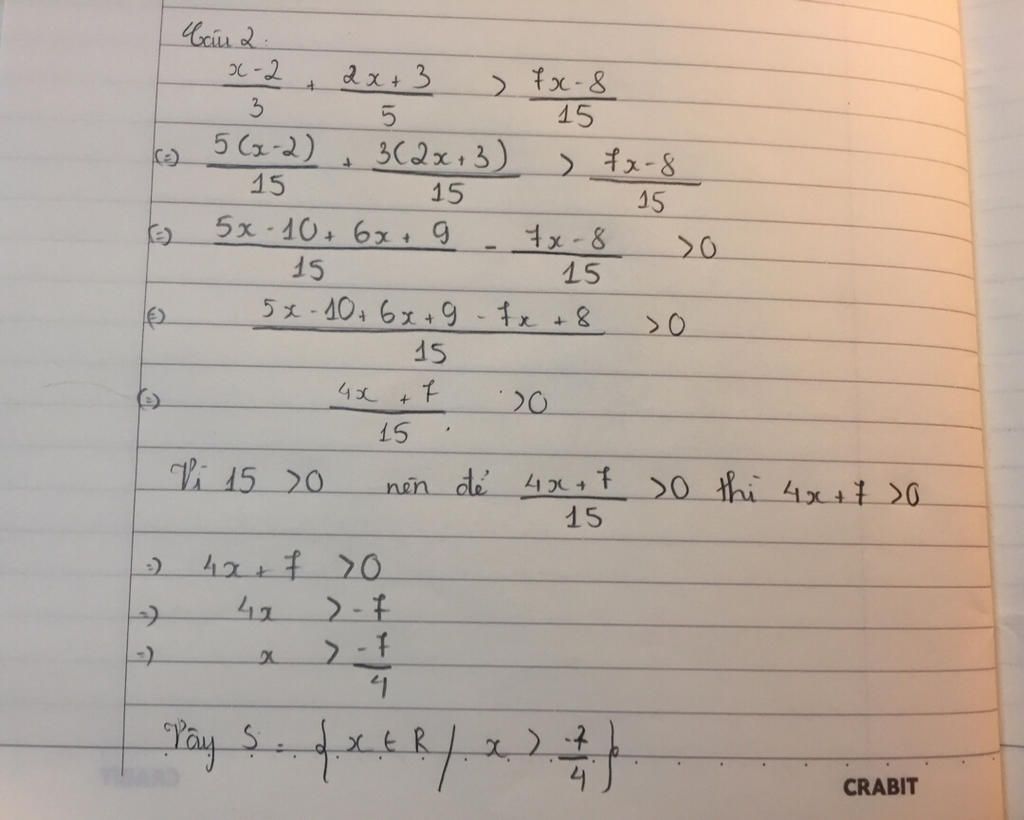 Câu 2:
x-2/3 + 2x+3/5 > 7x-8/15
(=) 5(x-2)/15 + 3(2x+3)/15 > 7x-8/15
(=) 5x-10+6x+9/15 - 7x-8/15 >0
(=) 5x-10+6x+9-7x+8/15 >0
(=) 4x+7/15 >0
Vì 15 >0 nên để 4x+7/15 >0 thì 4x+7 >0
=) 4x+7 >0
=) 4x > -7
=) x > -7/4
Vậy S = { x ∈ R / x > -7/4 }
CRABIT